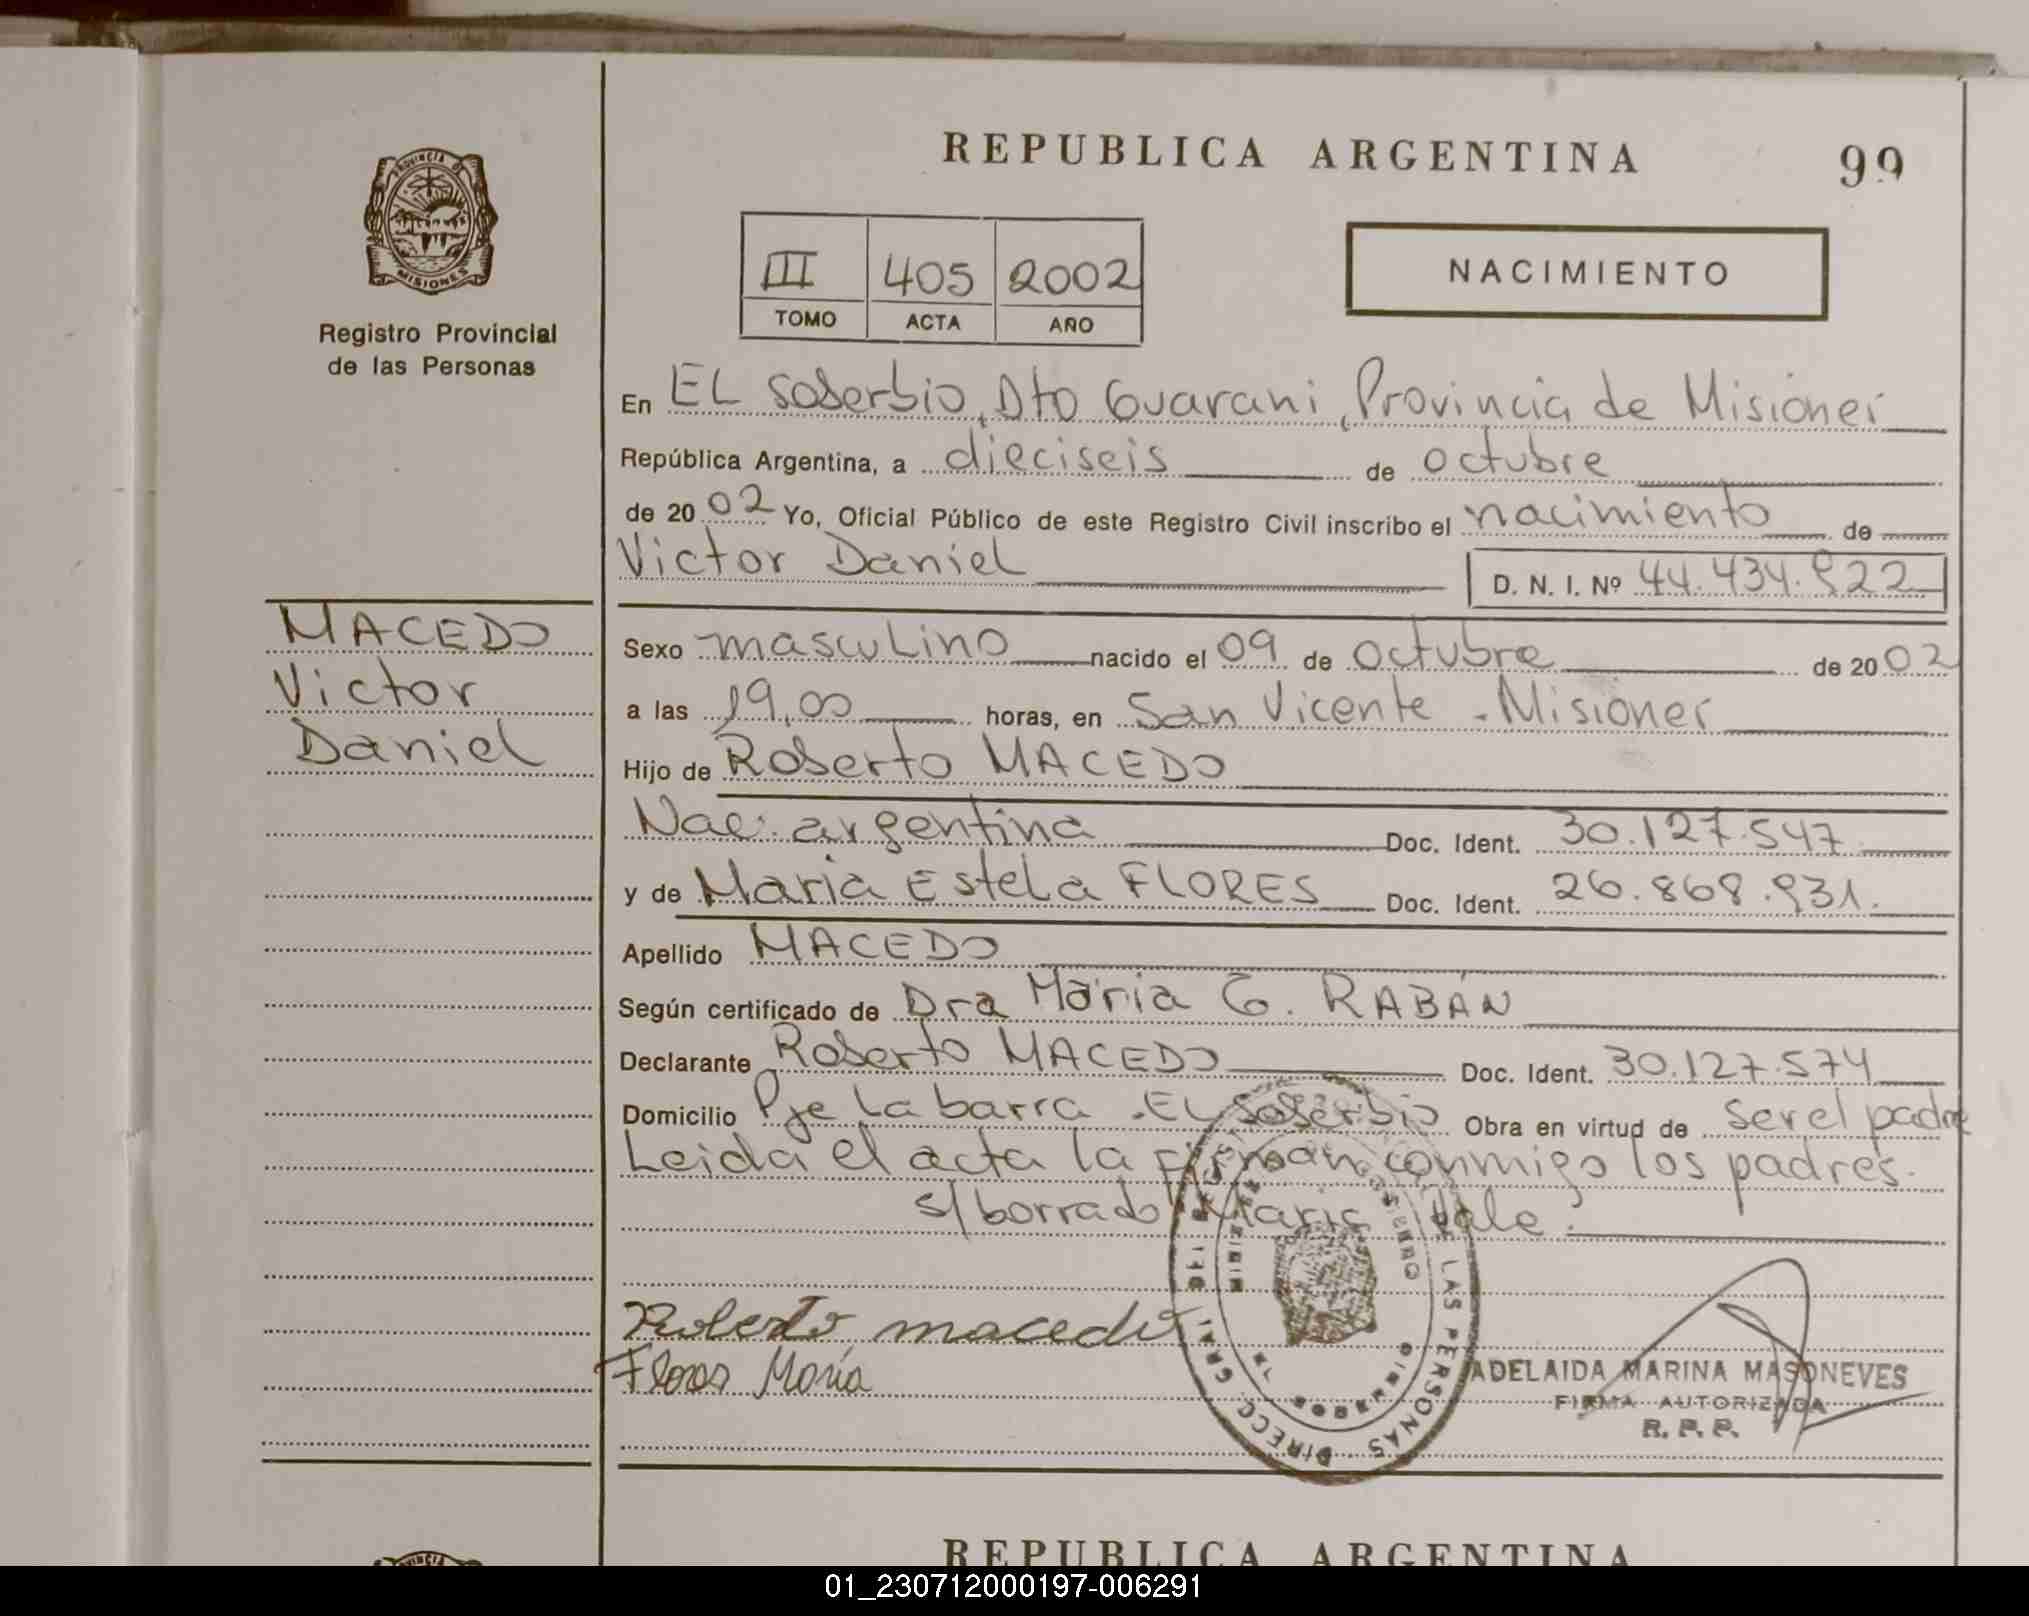 REPUBLICA ARGENTINA
99
PROVINCIA DE
MISIONES
Registro Provincial
de las Personas
III 405 2002
TOMO ACTA AÑO
NACIMIENTO
En EL Soberbio, Dto Guarani, Provincia de Misiones
República Argentina, a dieciseis de octubre
de 20 02 Yo, Oficial Público de este Registro Civil inscribo el nacimiento de
Victor Daniel D. N. I. Nº 44.434.922
MACEDO
Victor
Daniel
Sexo masculino nacido el 09 de octubre de 20 02
a las 19,00 horas, en San Vicente - Misiones
Hijo de Roberto MACEDO
Nac. argentina Doc. Ident. 30.127.547
y de Maria Estela FLORES Doc. Ident. 26.868.931.
Apellido MACEDO
Según certificado de Dra Maria G. RABÁN
Declarante Roberto MACEDO Doc. Ident. 30.127.574
Domicilio Pje La barra - EL Soberbio Obra en virtud de ser el padre
Leida el acta la firman conmigo los padres.
s/ borrado Maria Vale.
Roberto macedo
Flores María
DIRECC GRAL DE LAS PERSONAS
ADELAIDA MARINA MASONEVES
FIRMA AUTORIZADA
R. P. P.
REPUBLICA ARGENTINA
01_230712000197-006291